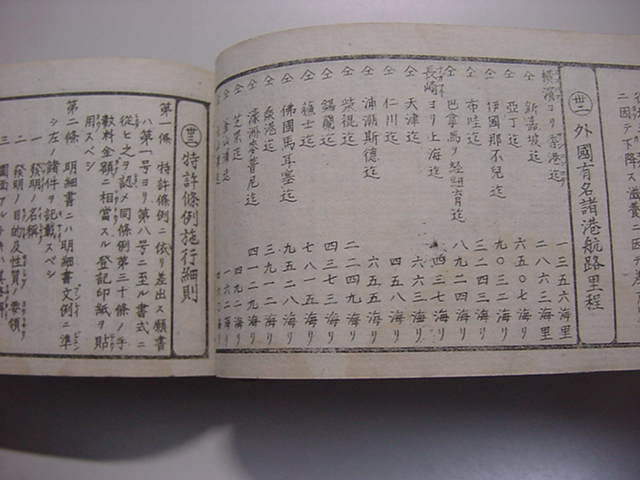 ニ因テ下降ス滋養ニ因テ
外國有名諸港航路里程
横濱ヨリ香港迄 一三五六海里
仝 新嘉坡迄 二八六三海り
仝 亞丁迄 六五〇七海り
仝 伊國那不兒迄 九〇三二海り
仝 布哇迄 三二四三海り
仝 巴拿馬ヲ経紐育迄 八九二四海り
長崎ヨリ上海迄 四三七海り
仝 天津迄 六六三海り
仝 仁川迄 四五四海り
仝 浦潮斯德迄 六五五海り
仝 柴棍迄 二二四九海り
仝 錫蘭迄 四三七三海り
仝 蘓士迄 七八一五海り
仝 佛國馬耳塞迄 九五二八海り
仝 桑港迄 三九一二海り
仝 濠洲 迄 四一二九海り
仝 芝罘迄
特許條例施行細則
第一條 特許條例ニ依リ差出ス願書
ハ第一号ヨリ第八号ニ至ル書式ニ
從ヒ之ヲ認メ同條例第三十條ノ手
數料金額ニ相當スル登記印紙ヲ貼
用スベシ
第二條 明細書ニハ明細書文例ニ準
シ左ノ諸件ヲ記載スベシ
一 發明ノ名稱
二 發明ノ目的及性質ノ要領
三 圖面アルトキハ其